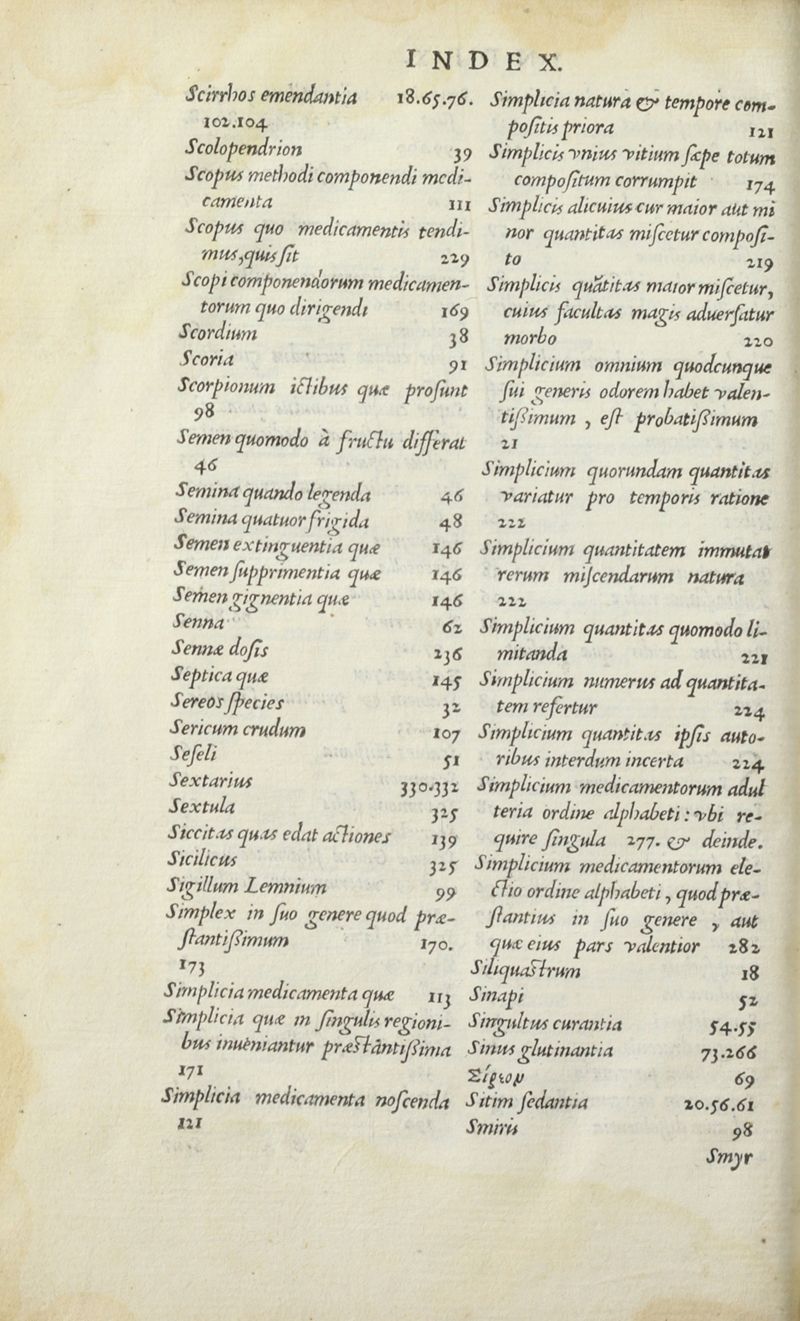 INDEX.
Scirrhos emendantia 18.65.76.
102.104
Scolopendrion 39
Scopus methodi componendi medi-
camenta 111
Scopus quo medicamentis tendi-
mus, quis sit 229
Scopi componendorum medicamen-
torum quo dirigendi 169
Scordium 38
Scoria 91
Scorpionum ictibus quæ prosunt
98
Semen quomodo à fructu differat
46
Semina quando legenda 46
Semina quatuor frigida 48
Semen extinguentia quæ 146
Semen supprimentia quæ 146
Semen gignentia quæ 146
Senna 62
Sennæ dosis 236
Septica quæ 145
Sereos species 32
Sericum crudum 107
Seseli 51
Sextarius 330.332
Sextula 325
Siccitas quas edat actiones 139
Sicilicus 325
Sigillum Lemnium 99
Simplex in suo genere quod præ-
stantißimum 170.
173
Simplicia medicamenta quæ 113
Simplicia quæ in singulis regioni-
bus inueniantur præstantißima
171
Simplicia medicamenta noscenda
121
Simplicia natura & tempore com-
positis priora 121
Simplicis vnius vitium sæpe totum
compositum corrumpit 174
Simplicis alicuius cur maior aut mi
nor quantitas miscetur composi-
to 219
Simplicis quãtitas maior miscetur,
cuius facultas magis aduersatur
morbo 220
Simplicium omnium quodcunque
sui generis odorem habet valen-
tißimum, est probatißimum
21
Simplicium quorundam quantitas
variatur pro temporis ratione
222
Simplicium quantitatem immutat
rerum miscendarum natura
222
Simplicium quantitas quomodo li-
mitanda 221
Simplicium numerus ad quantita-
tem refertur 224
Simplicium quantitas ipsis auto-
ribus interdum incerta 224
Simplicium medicamentorum adul
teria ordine alphabeti: vbi re-
quire singula 277. & deinde.
Simplicium medicamentorum ele-
ctio ordine alphabeti, quod præ-
stantius in suo genere, aut
quæ eius pars valentior 282
Siliquastrum 18
Sinapi 52
Singultus curantia 54.55
Sinus glutinantia 73.266
69
Sitim sedantia 20.56.61
Smiris 98
Smyr